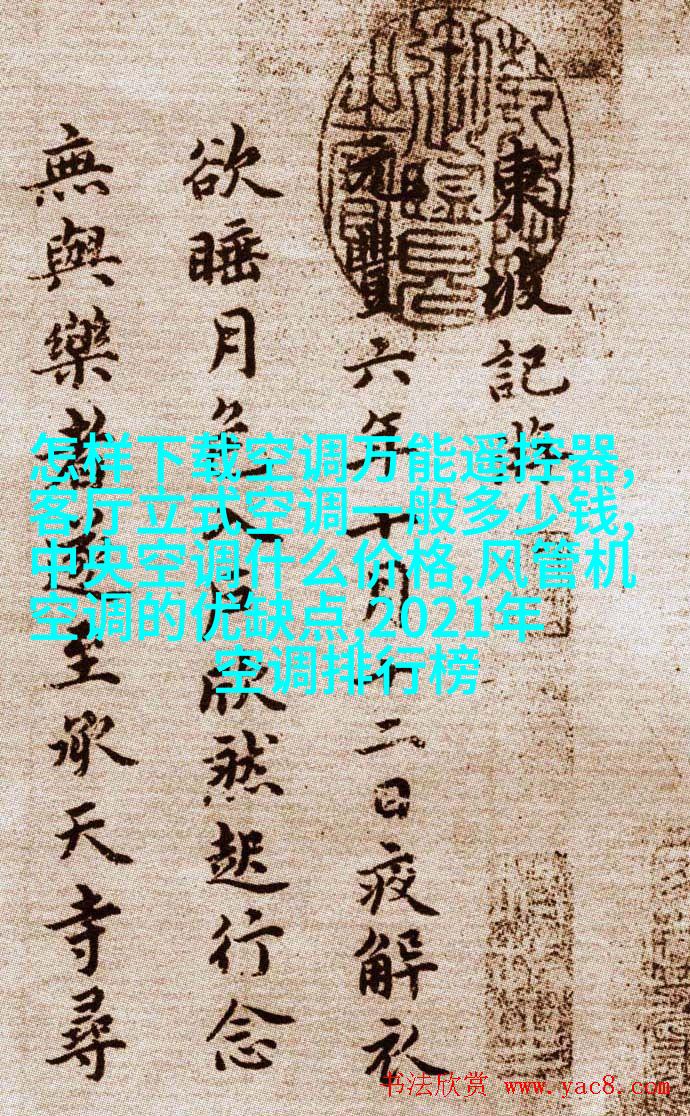 東坡記
元豐六年十月十二日夜解衣
欲睡月色入戶欣然起行念
無與樂者遂至承天寺尋
怎样下载空调万能遥控器,
客厅立式空调一般多少钱,
中央空调什么价格,风管机
空调的优缺点,2021年
空调排行榜
书法欣赏 www.yac8.com